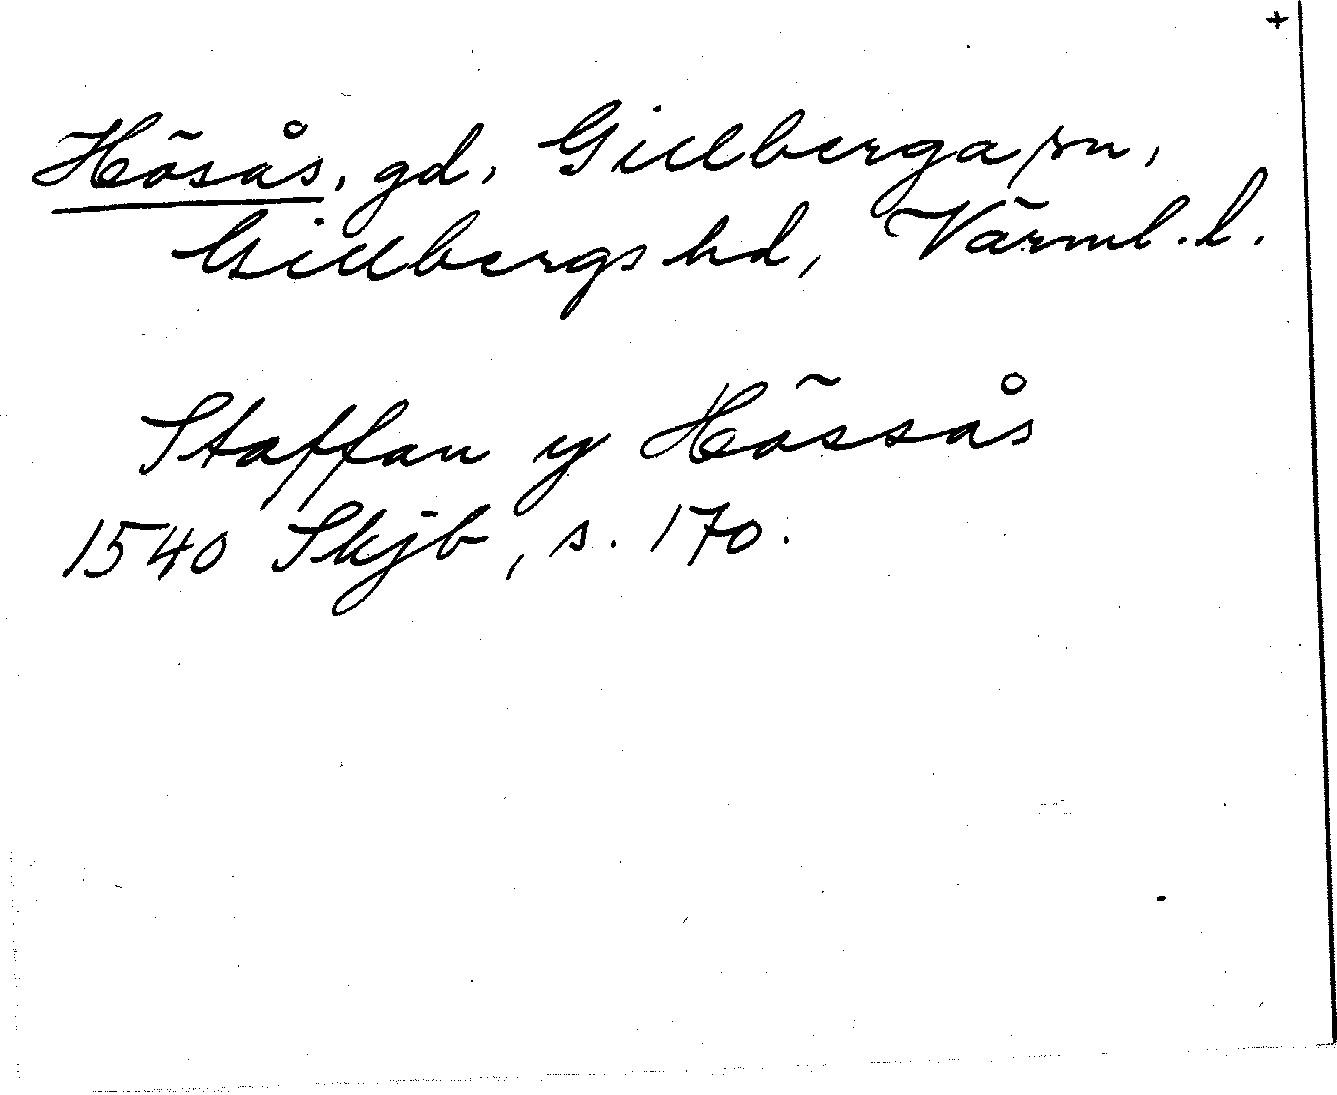 +
Hösås, gd, Gillberga sn,
Gillbergs hd, Värml. l.
Staffan y Hössås
1540 Skjb, s. 170.